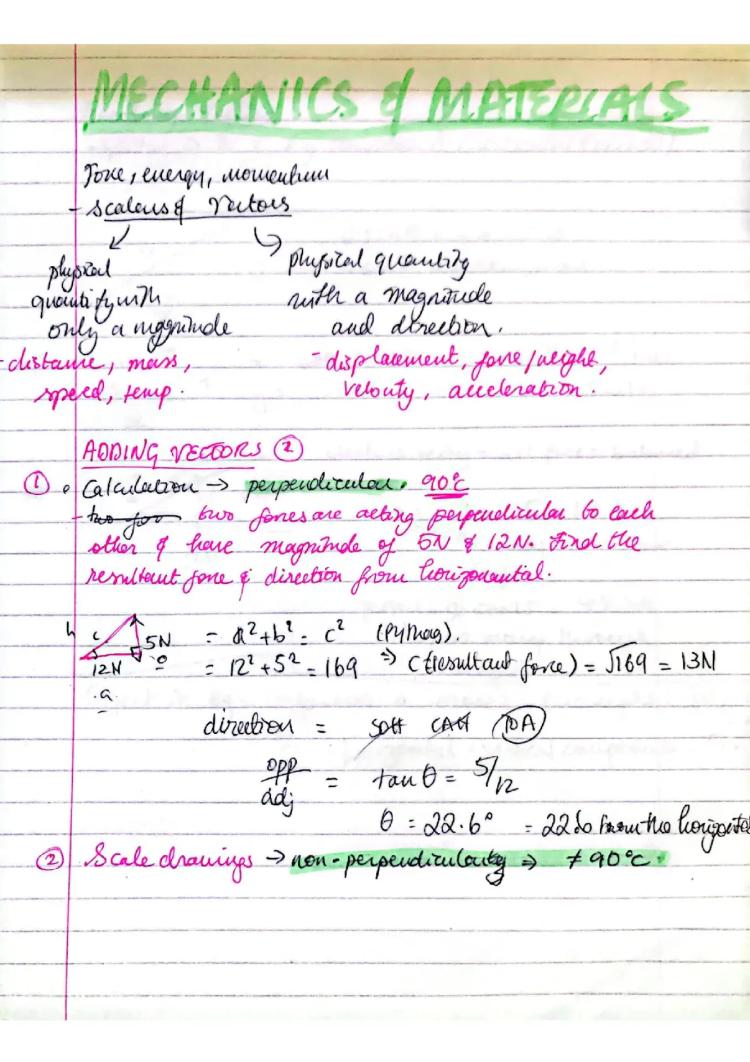 MECHANICS & MATERIALS
Force, energy, momentum
- scalars & vectors
physical
quantity with
only a magnitude
- distance, mass,
speed, temp.
physical quantity
with a magnitude
and direction.
- displacement, force/weight,
velocity, acceleration.
ADDING VECTORS ②
① • Calculation → perpendicular. 90°c
- two for two forces are acting perpendicular to each
other & have magnitude of 5N & 12N. Find the
resultant force & direction from horizonantal.
h c 5N o
12N
a
= a² + b² = c² (Pythag).
= 12² + 5² = 169 ⇒ C (resultant force) = √169 = 13N
direction = SOH CAH TOA
opp/adj = tan θ = 5/12
θ = 22.6° = 22.6 from the horizontal
② Scale drawings → non-perpendicularity ⇒ ≠ 90°c.